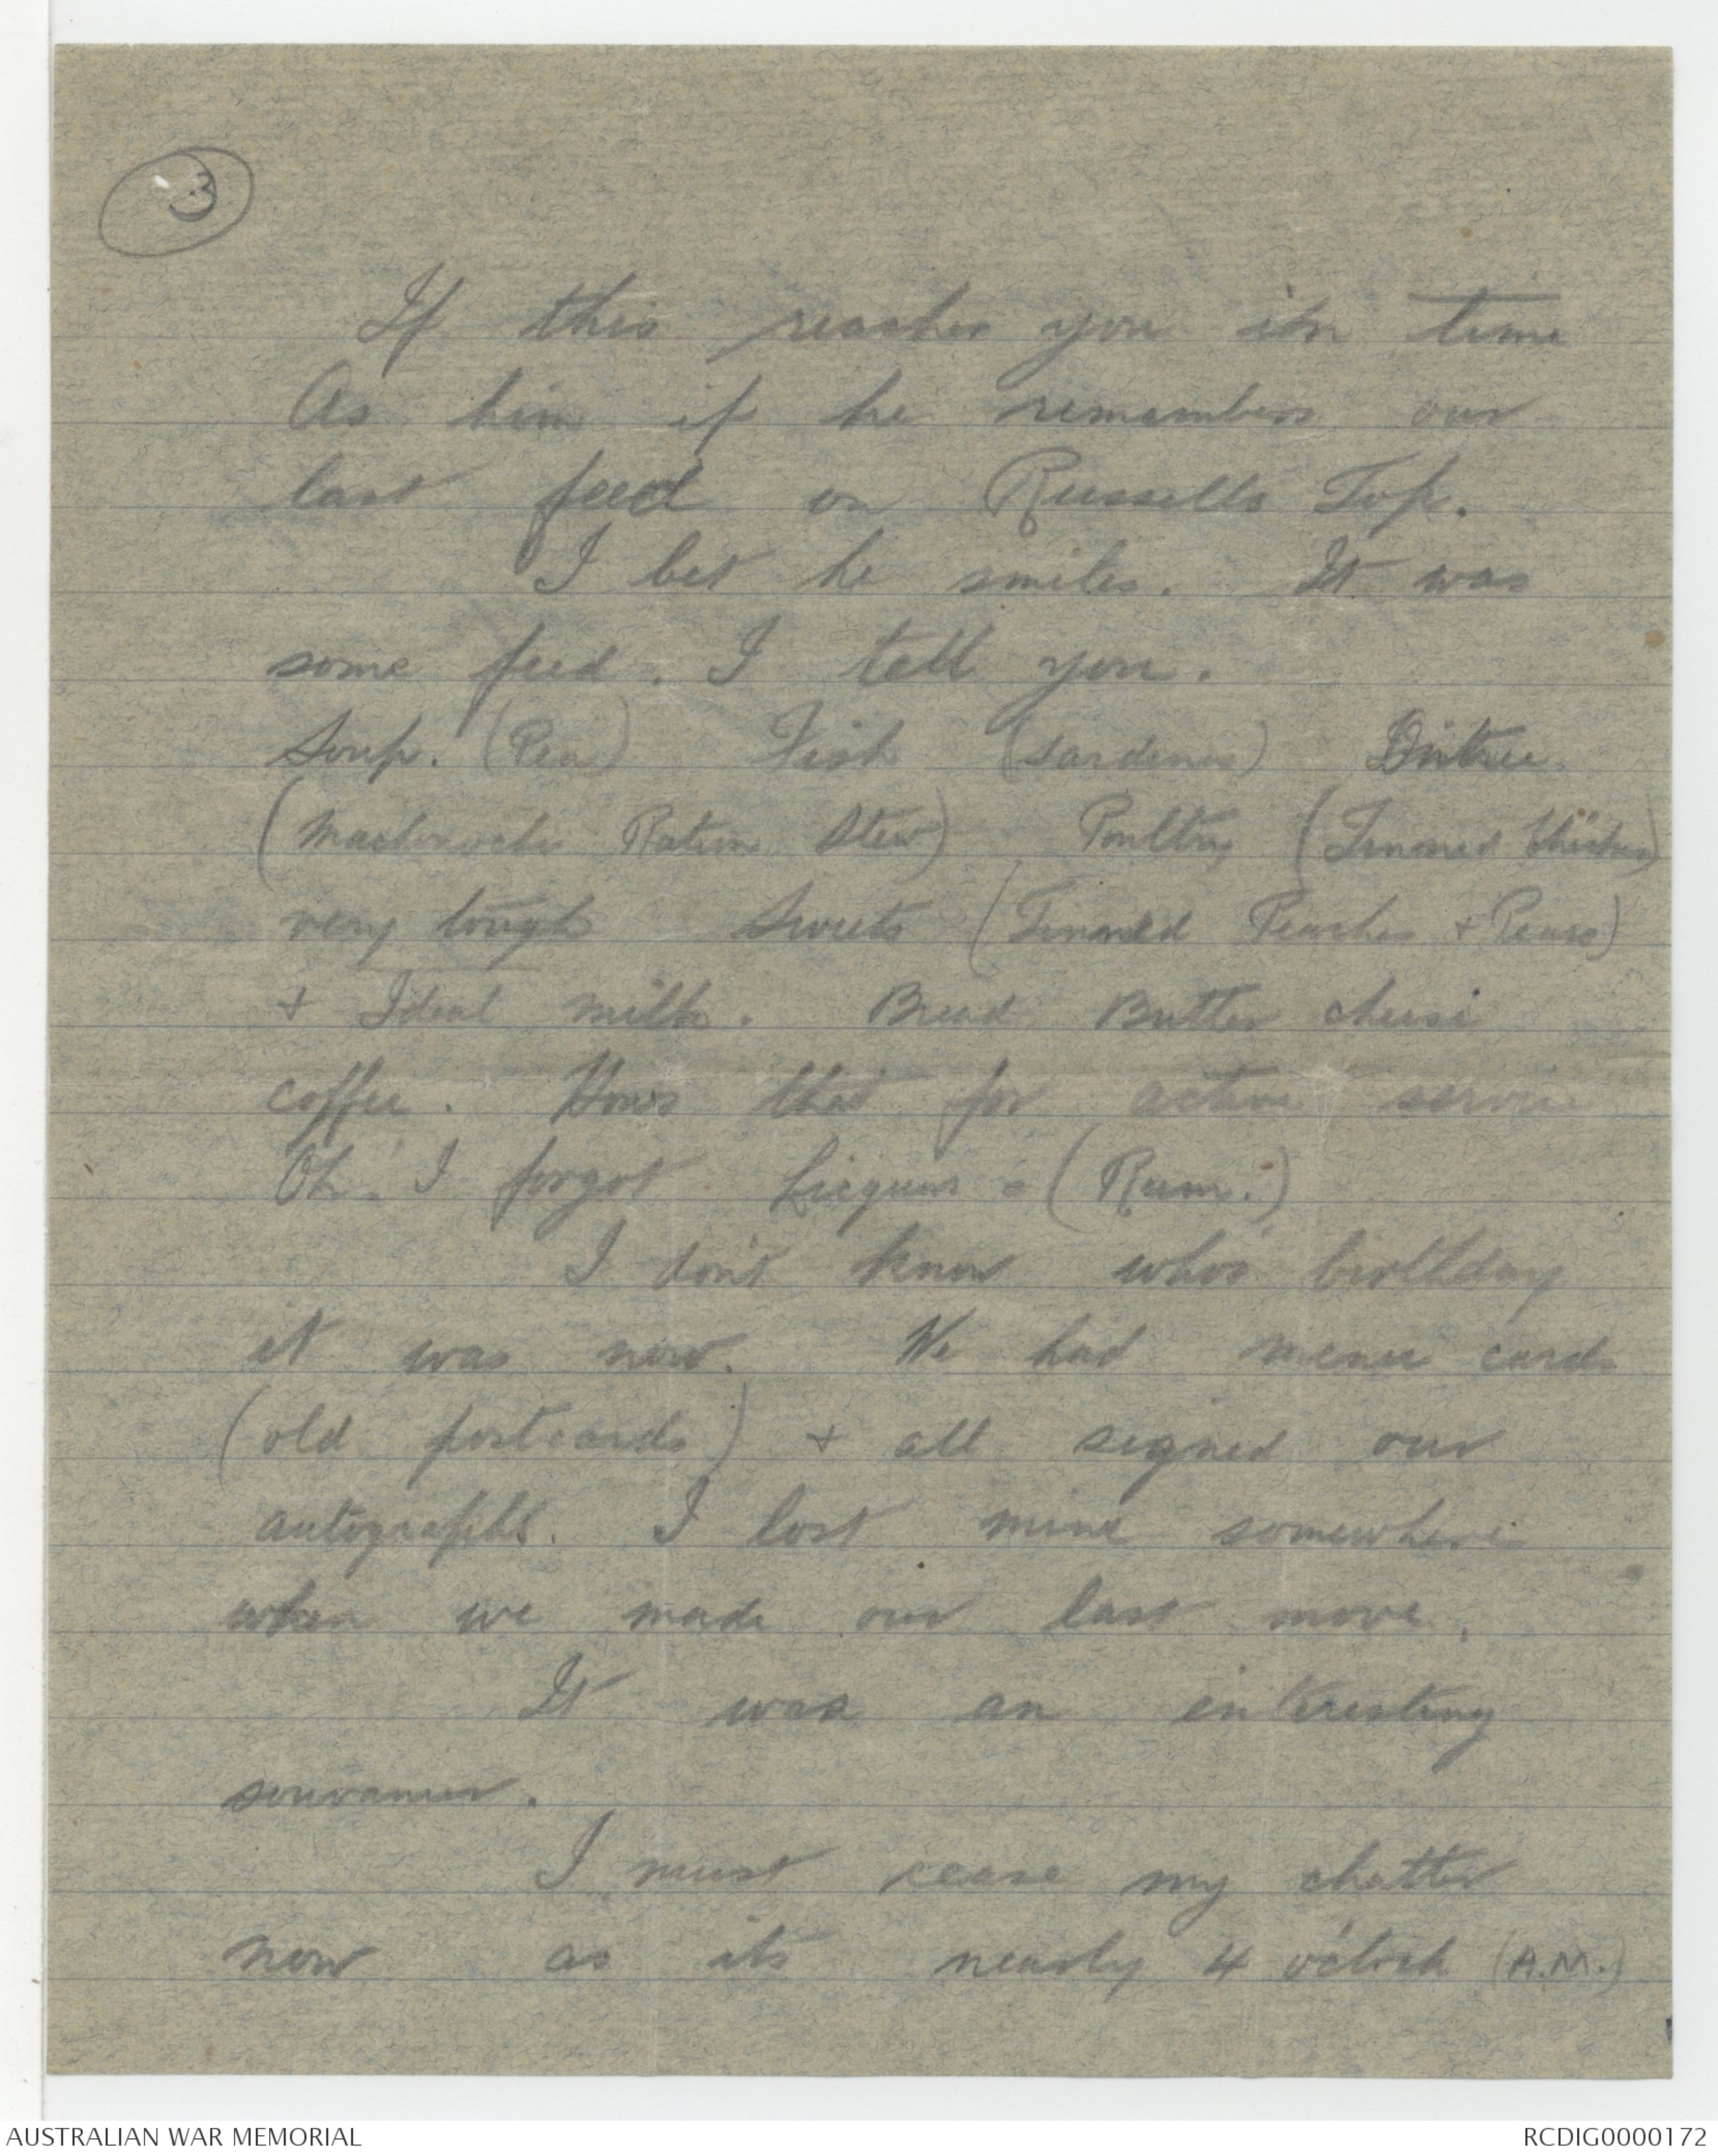 3
If this reaches you in time
As him if he remembers our
last feed on Russells Top.
I bet he smiles. It was
some feed. I tell you.
Soup. (Pea) Fish (Sardines) Entree
(Machonochi Ration Stew) Poultry (Tinned Chicken)
very tough Sweets (Tinned Peaches + Pears)
+ Ideal milk. Bread Butter cheese
coffee. Hows that for active service
Oh. I forgot. (Rum.)
I don't know who's birthday
it was now. We had menu cards
(old postcards) + all signed our
autographs. I lost mine somewhere
when we made our last move.
It was an interesting
souvanier.
I must cease my chatter
now as its nearly 4 o'clock (A.M.)
AUSTRALIAN WAR MEMORIAL
RCDIG0000172